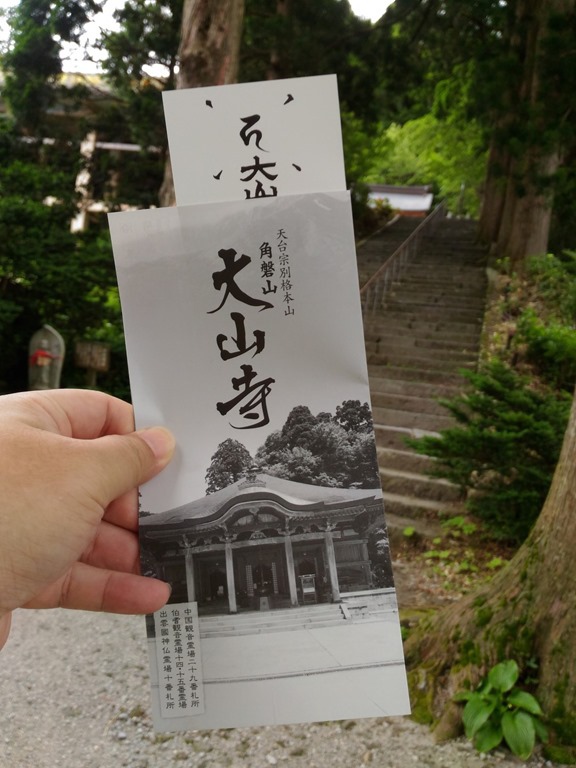 大山
天台宗別格本山
角磐山
大山寺
中国観音霊場二十九番札所
伯耆観音霊場十四・十五番霊場
出雲國神仏霊場十番札所